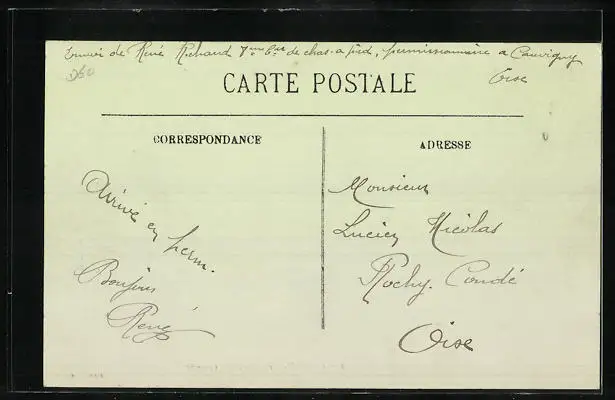 Envoi de René Richard 7me Bon de chas. a pied, permissionnaire a Cauvigny
Oise
D60
CARTE POSTALE
CORRESPONDANCE
Arrivé en perm.
Bonjour
René
ADRESSE
Monsieur
Lucien Nicolas
Rochy Condé
Oise